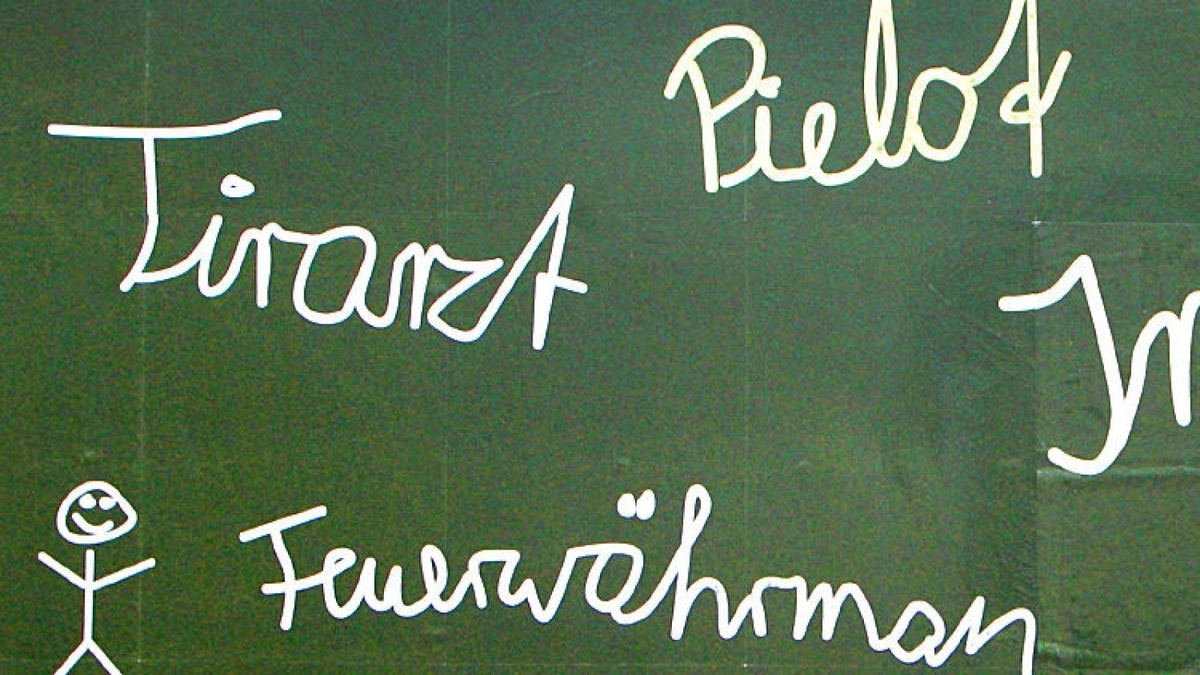 Pielot
Tirarzt
Feuerwährman